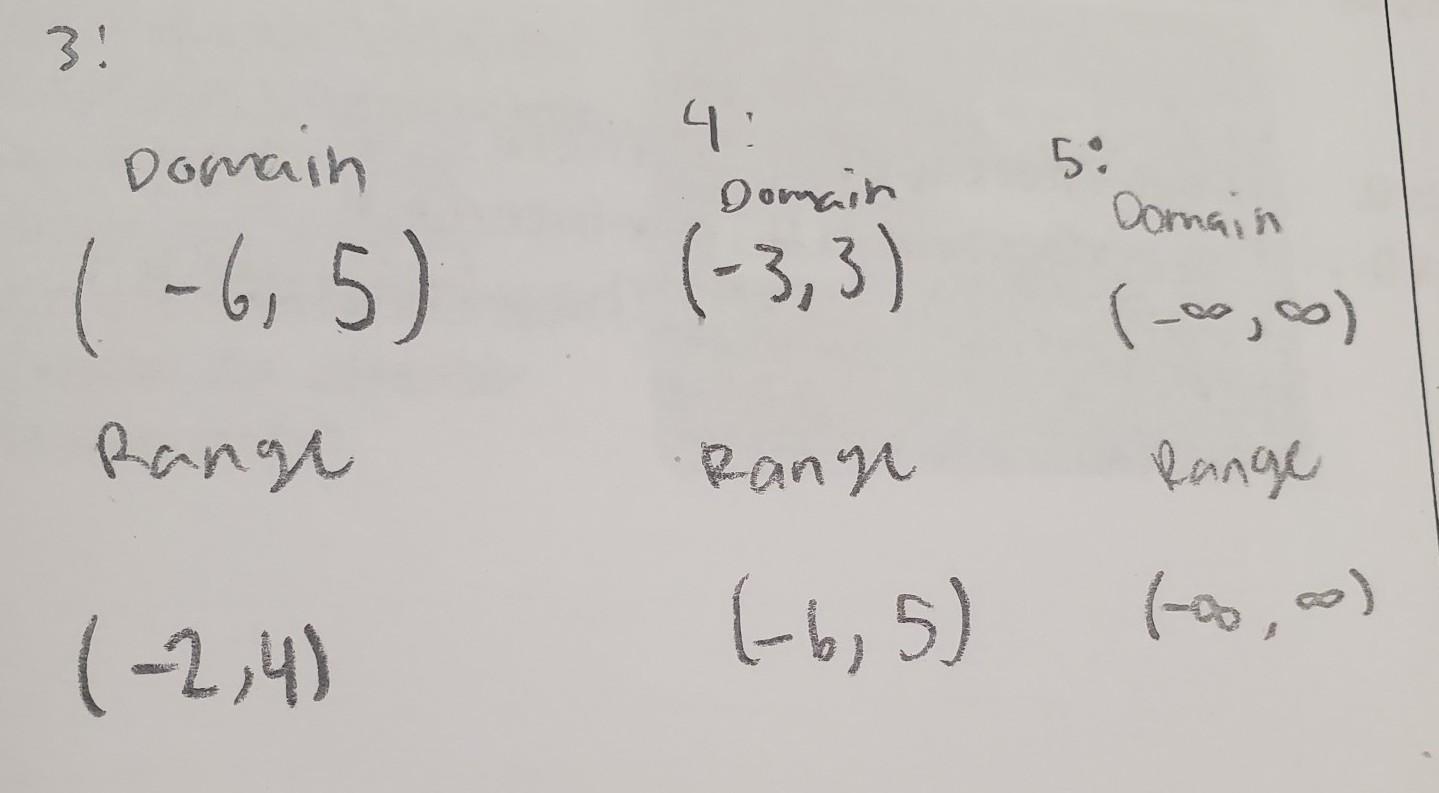 3:
Domain
(-6, 5)
Range
(-2,4)
4:
Domain
(-3,3)
Range
(-6,5)
5:
Domain
(-∞,∞)
Range
(-∞,∞)